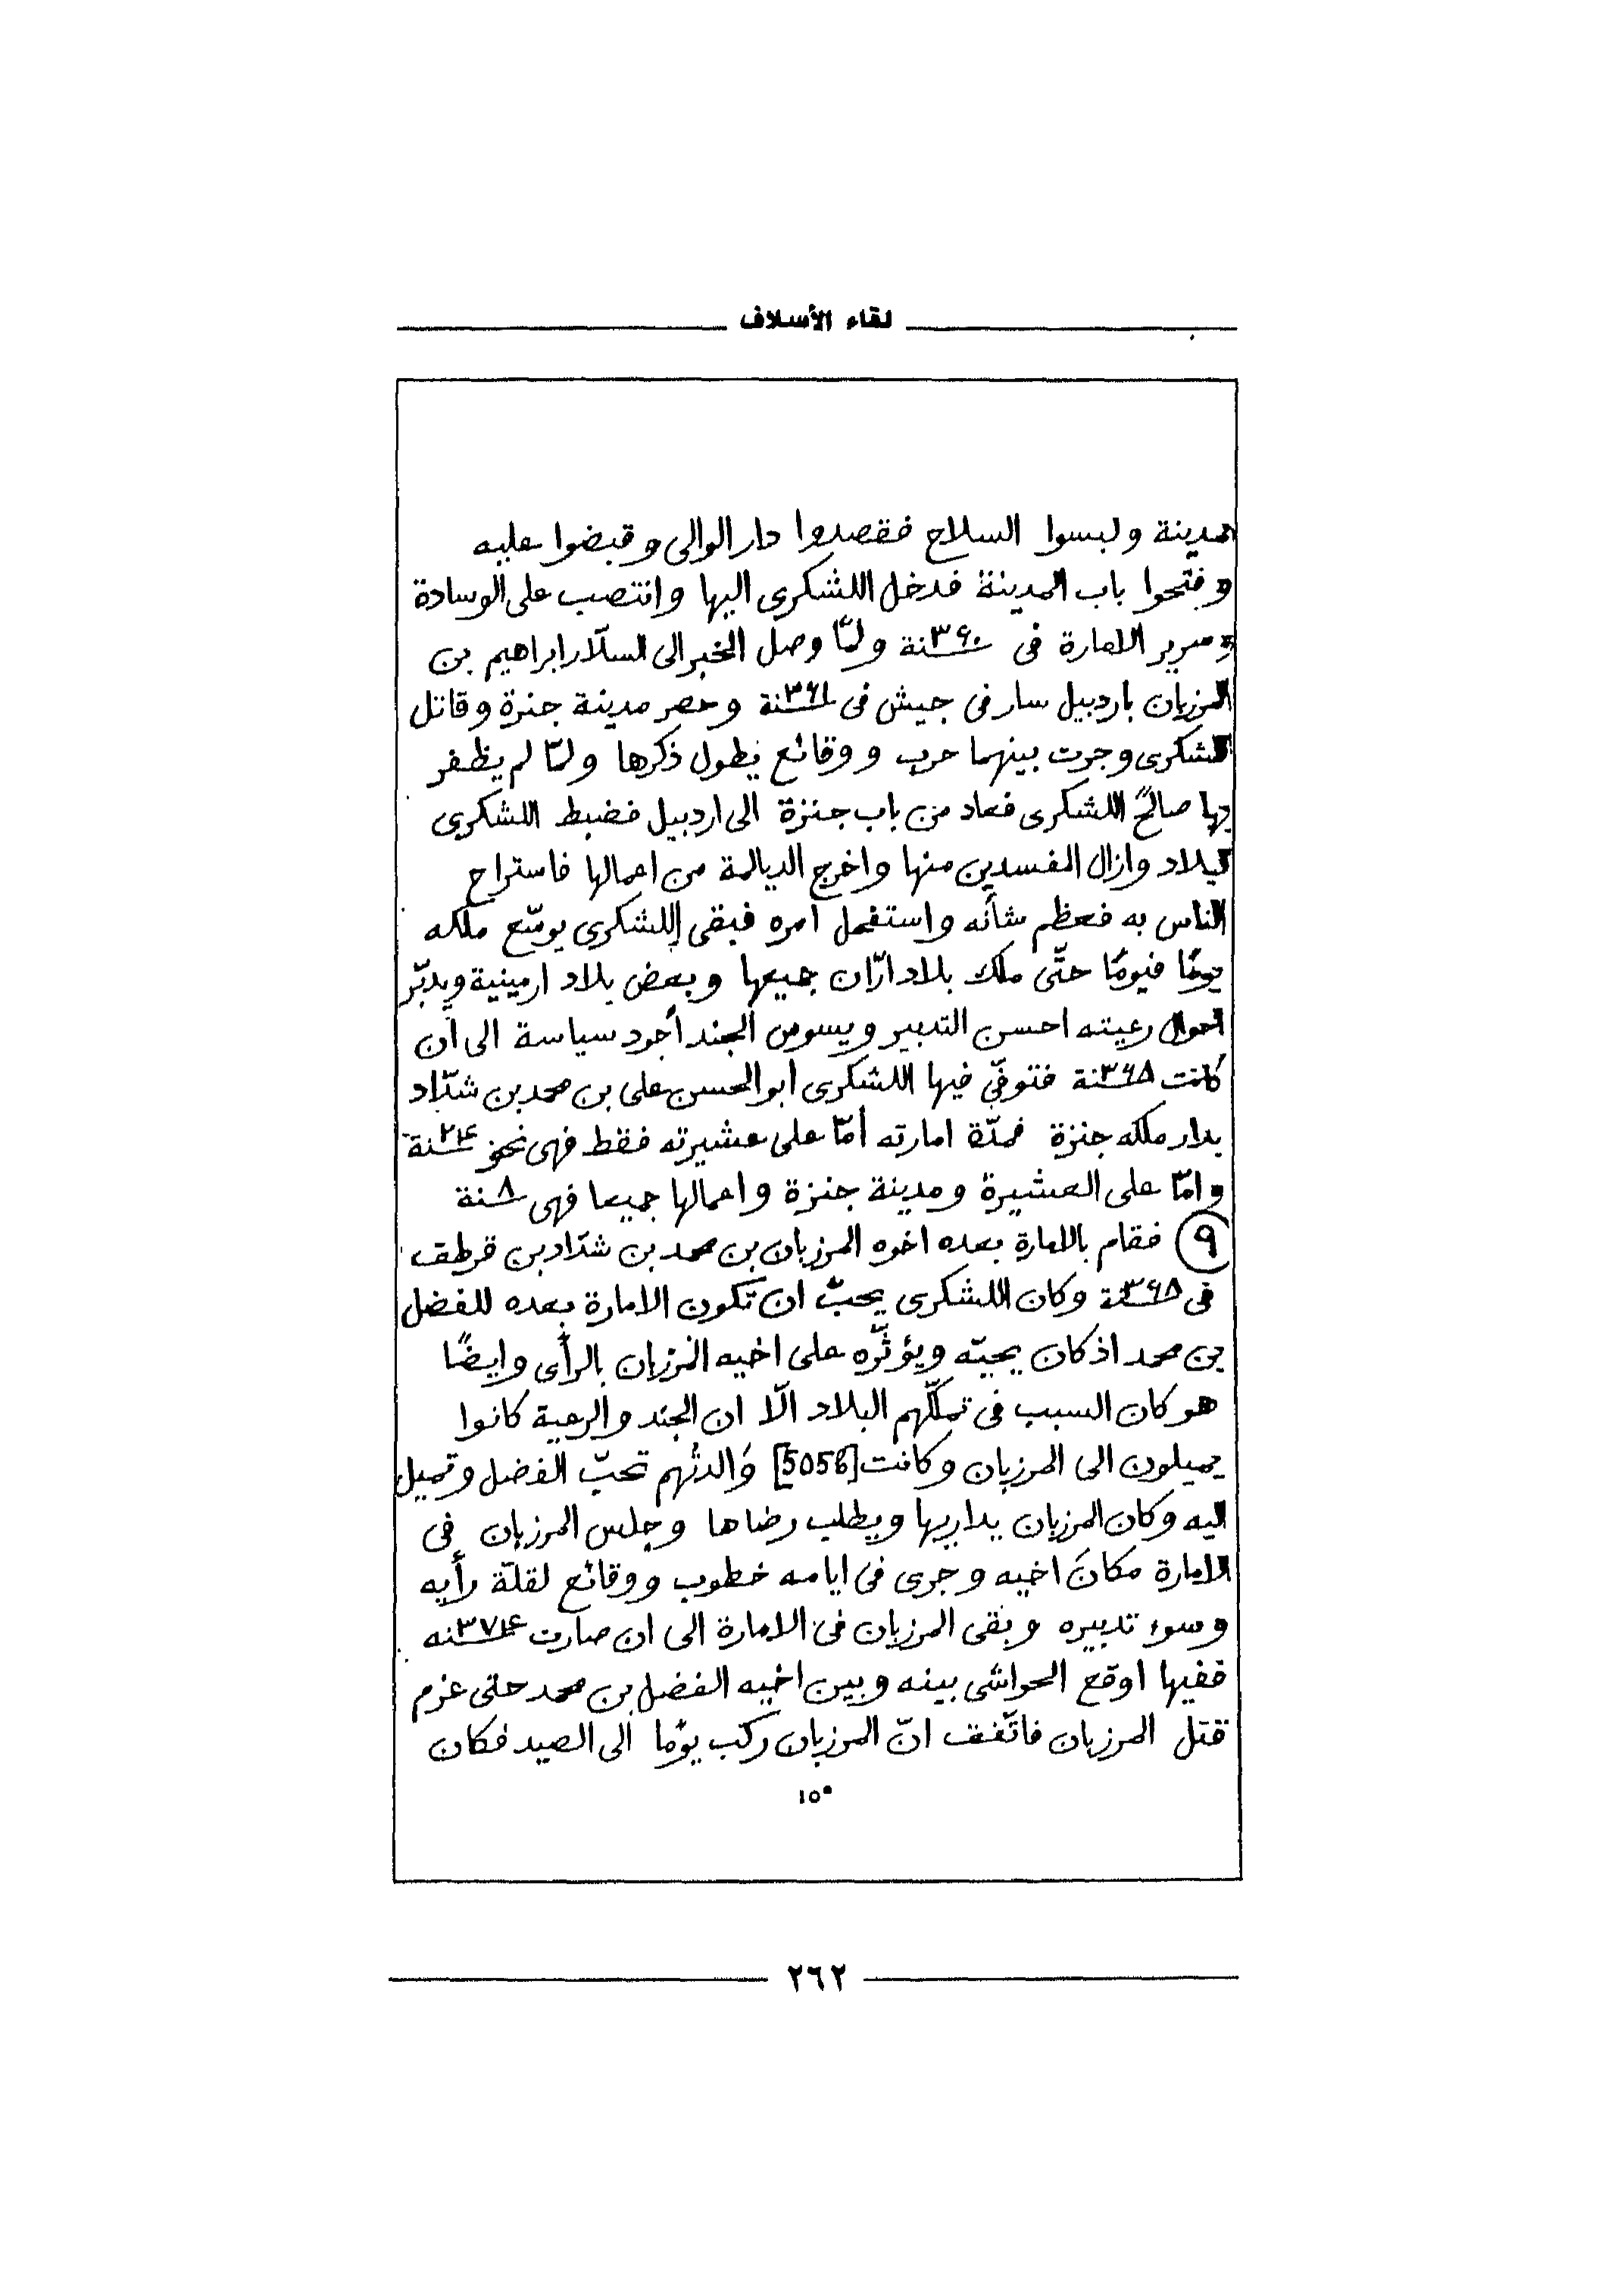 لقاء الأسلاف
المدينة ولبسوا السلاح فقصدوا دار الوالى وقبضوا عليه
وفتحوا باب المدينة فدخل اللشكرى اليها وانتصب على الوسادة
وسرير الامارة فى سنة ٣۶٠ ولمّا وصل الخبر الى السلّار ابراهيم بن
المرزبان باردبيل سار فى جيش فى سنة ٣۶١ وحصر مدينة جنزة وقاتل
اللشكرى وجرت بينهما حرب ووقائع يطول ذكرها ولمّا لم يظفر
بها صالح اللشكرى فعاد من باب جنزة الى اردبيل فضبط اللشكرى
البلاد وازال المفسدين منها واخرج الديالمة من اعمالها فاستراح
الناس به فعظم شأنه واستفحل امره فبقى اللشكرى يوسّع ملكه
يومًا فيومًا حتّى ملك بلاد ارّان جميعها وبعض بلاد ارمينية ويدبّر
احوال رعيته احسن التدبير ويسوس الجند أجود سياسة الى أن
كانت سنة ٣۶٨ فتوفّى فيها اللشكرى ابو الحسن على بن محمد بن شدّاد
بدار ملكه جنزة فمدّة امارته أمّا على عشيرته فقط فهى نحو ٢۴ سنة
وامّا على العشيرة ومدينة جنزة واعمالها جميعا فهى ٨ سنة
(٩) فقام بالامارة بعده اخوه المرزبان بن محمد بن شدّاد بن قرطق
فى سنة ٣۶٨ وكان اللشكرى يحبّ ان تكون الامارة بعده للفضل
بن محمد اذ كان يحبّه ويؤثّره على اخيه المرزبان بالرأى وايضًا
هو كان السبب فى تملّكهم البلاد الّا ان الجند والرعية كانوا
يميلون الى المرزبان وكانت [505b] والدتُهم تحبّ الفضل وتميل
اليه وكان المرزبان يداريها ويطلب رضاها وجلس المرزبان فى
الامارة مكانَ اخيه وجرى فى ايامه خطوب ووقائع لقلّة رأيه
وسوء تدبيره وبقى المرزبان فى الامارة الى ان صارت سنه ٣٧۴
ففيها اوقع الحواشى بينه وبين اخيه الفضل بن محمد حتى عزم
قتل المرزبان فاتّفق انّ المرزبان ركب يومًا الى الصيد فكان
١٥*
٢٦٢